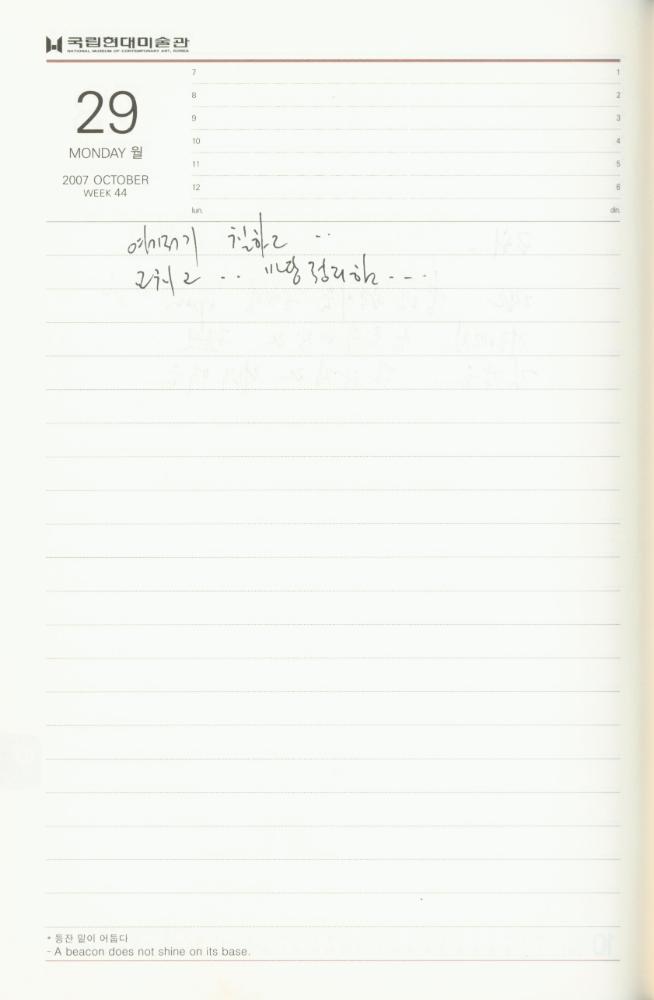 국립현대미술관
NATIONAL MUSEUM OF CONTEMPORARY ART, KOREA
29
MONDAY 월
2007 OCTOBER
WEEK 44
7 1
8 2
9 3
10 4
11 5
12 6
lun. din.
여기저기 칠하고 ..
고치고 .. 마당 정리함 ----
* 등잔 밑이 어둡다
- A beacon does not shine on its base.